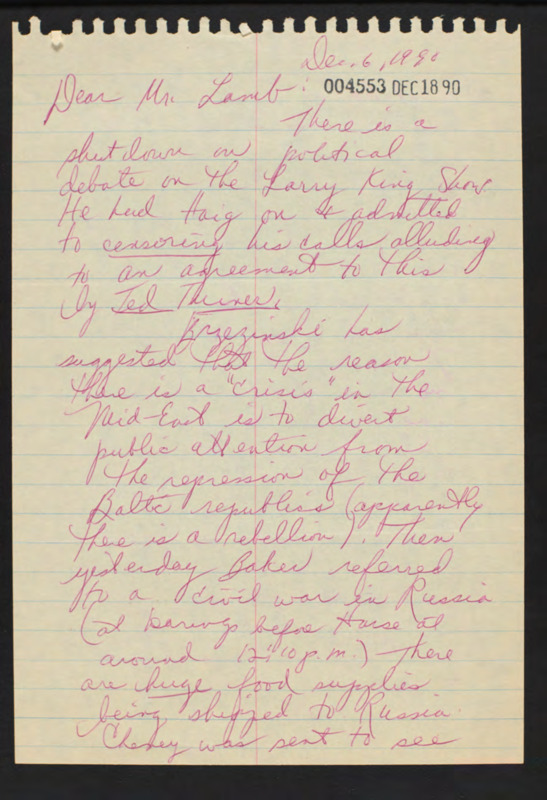 Dec. 6, 1990
004553 DEC 18 90
Dear Mr. Lamb:
There is a
shutdown on political
debate on the Larry King Show
He had Haig on & admitted
to censoring his calls alluding
to an agreement to this
by Ted Turner.
Brzezinski has
suggested that the reason
there is a "crisis" in the
Mid-East is to divert
public attention from
the repression of the
Baltic republics (apparently
there is a rebellion). Then
yesterday Baker referred
to a civil war in Russia
(at hearings before House at
around 12:10 p.m.) There
are huge food supplies
being shipped to Russia.
Cheney was sent to see